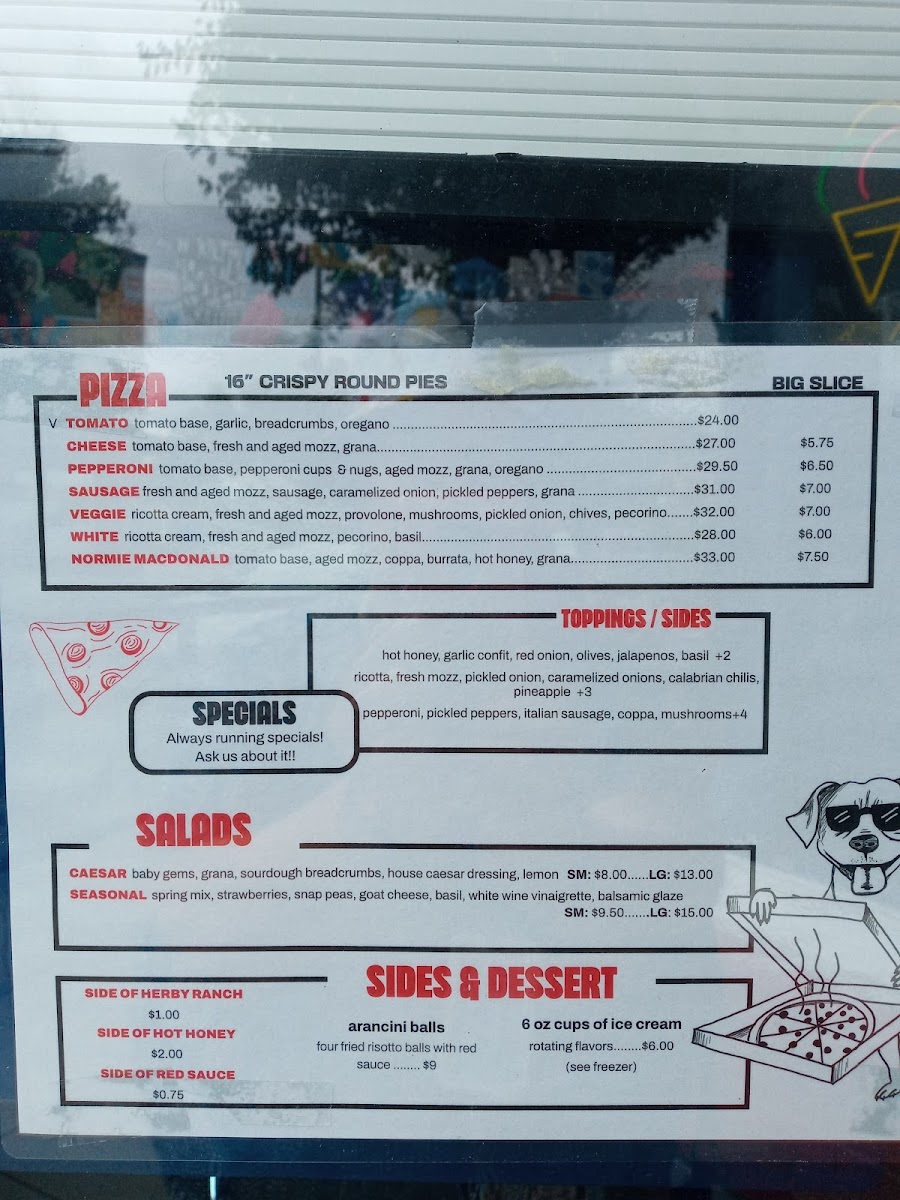 PIZZA 16" CRISPY ROUND PIES BIG SLICE
V TOMATO tomato base, garlic, breadcrumbs, oregano ........................................................................$24.00
CHEESE tomato base, fresh and aged mozz, grana...........................................................................$27.00 $5.75
PEPPERONI tomato base, pepperoni cups & nugs, aged mozz, grana, oregano ...................................$29.50 $6.50
SAUSAGE fresh and aged mozz, sausage, caramelized onion, pickled peppers, grana ...........................$31.00 $7.00
VEGGIE ricotta cream, fresh and aged mozz, provolone, mushrooms, pickled onion, chives, pecorino.......$32.00 $7.00
WHITE ricotta cream, fresh and aged mozz, pecorino, basil................................................................$28.00 $6.00
NORMIE MACDONALD tomato base, aged mozz, coppa, burrata, hot honey, grana.............................$33.00 $7.50
TOPPINGS / SIDES
hot honey, garlic confit, red onion, olives, jalapenos, basil +2
ricotta, fresh mozz, pickled onion, caramelized onions, calabrian chilis,
pineapple +3
pepperoni, pickled peppers, italian sausage, coppa, mushrooms+4
SPECIALS
Always running specials!
Ask us about it!!
SALADS
CAESAR baby gems, grana, sourdough breadcrumbs, house caesar dressing, lemon SM: $8.00......LG: $13.00
SEASONAL spring mix, strawberries, snap peas, goat cheese, basil, white wine vinaigrette, balsamic glaze
SM: $9.50.......LG: $15.00
SIDES & DESSERT
SIDE OF HERBY RANCH
$1.00
SIDE OF HOT HONEY
$2.00
SIDE OF RED SAUCE
$0.75
arancini balls
four fried risotto balls with red
sauce ........ $9
6 oz cups of ice cream
rotating flavors........$6.00
(see freezer)